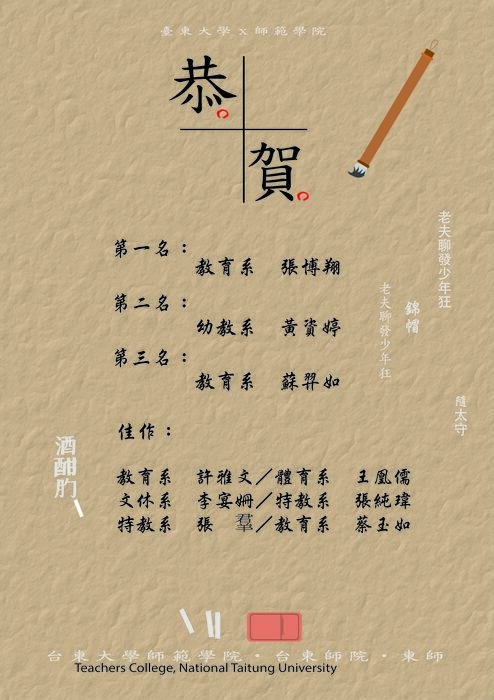 臺東大學 x 師範學院
恭
賀
老夫聊發少年狂
錦帽
老夫聊發少年狂
隨太守
第一名：
教育系 張博翔
第二名：
幼教系 黃資婷
第三名：
教育系 蘇羿如
佳作：
教育系 許雅文／體育系 王凰儒
文休系 李宴姍／特教系 張純瑋
特教系 張 羣／教育系 蔡玉如
酒酣
台東大學師範學院・台東師院・東師
Teachers College, National Taitung University